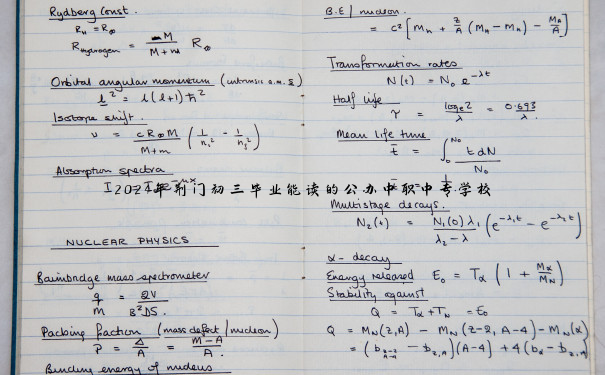 Rydberg Const.
R_H = R_∞
R_Hydrogen = M / (M + m) R_∞
Orbital angular momentum (intrinsic a.m. s)
l² = l(l+1) ħ²
Isotope shift.
ν = c R_∞ M / (M + m) (1/n₁² - 1/n₂²)
Absorption spectra
2024年荆门初三毕业能读的公办中职中专学校
NUCLEAR PHYSICS
Bainbridge mass spectrometer
q/m = 2V / B²DS.
Packing fraction (mass defect / nucleon)
P = Δ/A = (M - A)/A.
Binding energy of nucleus
B.E / nucleon.
Transformation rates
N(t) = N₀ e^-λt
Half life
= log_e 2 / λ = 0.693 / λ.
Mean life time
t̄ = ∫₀^N₀ t dN / N₀
Multistage decays.
N₂(t) = N₁(0) λ₁ / (λ₂ - λ) (e^-λ₁t - e^-λ₂t)
α - decay
Energy released E₀ = T_α (1 + M_α / M_N)
Stability against
Q = T_α + T_N = E₀
Q = M_N(Z,A) - M_N(Z-2, A-4) - M_N(α)